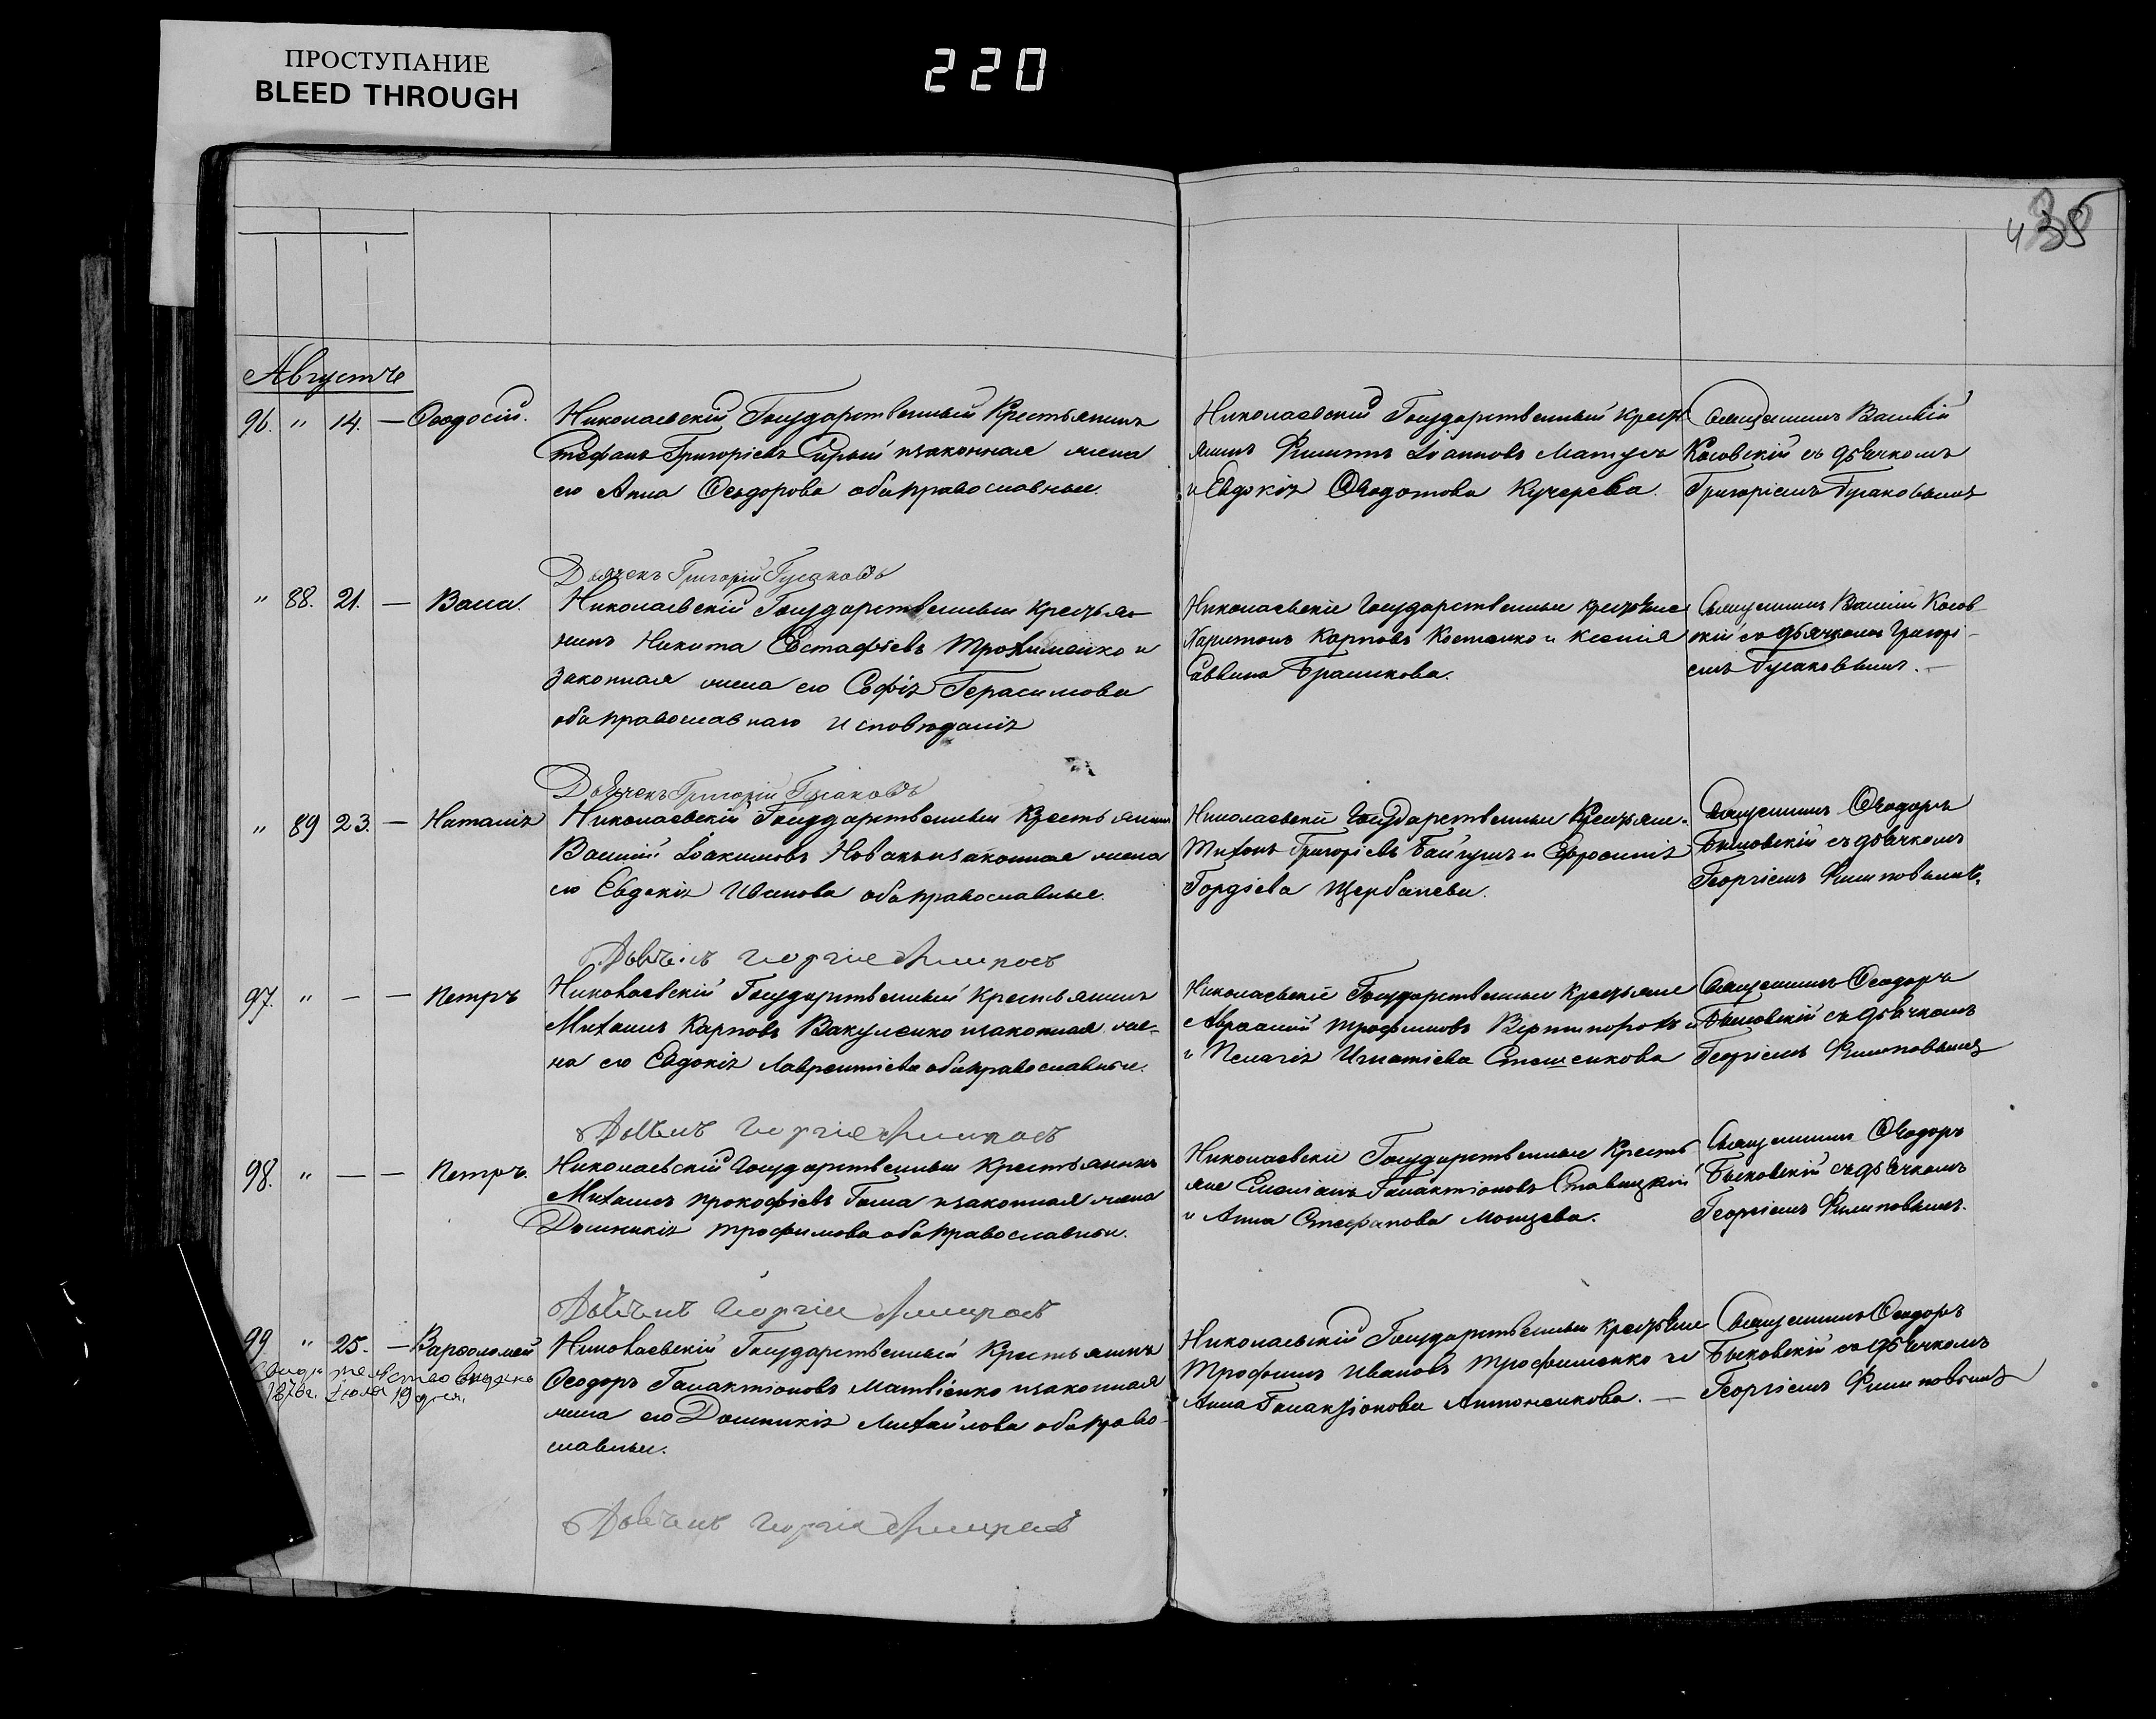 ПРОСТУПАНИЕ
BLEED THROUGH
220
435
Августѣ
96. " 14. — Ѳеодосій.
Николаевскій Государственный Крестьянинъ
Стефанъ Григоріевъ Сѣрый и законная жена
его Анна Ѳеодорова оба православные.
Николаевскій Государственный крест
янинъ Филиппъ Іоанновъ Матусъ
и Евдокія Ѳеодотова Кучерева.
Священникъ Василій
Косовскій съ дьячкомъ
Григоріемъ Гусаковымъ
Дьячекъ Григорій Гусаковъ
" 88. 21. — Васса.
Николаевскій Государственный крестья-
нинъ Никита Евстафіевъ Трохименко и
законная жена его Софія Герасимова
оба православнаго исповѣданія
Николаевскіе Государственные крестьяне
Харитонъ Карповъ Костенко и Ксенія
Саввина Бранникова.
Священникъ Василій Косов-
скій съ дьячкомъ Григорі-
емъ Гусаковымъ. —
Дьячекъ Григорій Гусаковъ
" 89 23. — Наталія
Николаевскій Государственный Крестьянинъ
Василій Іоакимовъ Новакъ и законная жена
его Евдокія Иванова оба православные.
Николаевскіе Государственные Крестьяне
Тихонъ Григоріевъ Байгушъ и Евфросинія
Гордіева Щербанева.
Священникъ Ѳеодоръ
Быковскій съ дьячкомъ
Георгіемъ Филиповымъ.
Дьячекъ Георгіе Филиповъ
97. " — — Петръ
Николаевскій Государственный Крестьянинъ
Михаилъ Карповъ Вакуленко и законная же-
на его Евдокія Лаврентіева оба православные.
Николаевскіе Государственные Крестьяне
Аврамій Трофимовъ Вертипорохъ и
и Пелагія Игнатіева Стешенкова
Священникъ Ѳеодоръ
Быковскій съ дьячкомъ
Георгіемъ Филиповымъ
Дьячекъ Георгіе Филиповъ
98. " — — Петръ.
Николаевскій Государственный Крестьянинъ
Михаилъ Прокофіевъ Гаша и законная жена
Домникія Трофимова оба православные.
Николаевскіе Государственные Кресть
яне Емеліанъ Галактіоновъ Ставицкій
и Анна Стефанова Мощева.
Священникъ Ѳеодоръ
Быковскій съ дьячкомъ
Георгіемъ Филиповымъ.
Дьячекъ Георгіе Филиповъ
99 " 25. — Варѳоломей
Николаевскій Государственный Крестьянинъ
Ѳеодоръ Галактіоновъ Матвіенко и законная
жена его Домникія Михайлова оба право-
славные.
Николаевскій Государственные крестьяне
Трофимъ Ивановъ Трофименко и
и Анна Галактіонова Антоненкова. —
Священникъ Ѳеодоръ
Быковскій съ дьячкомъ
Георгіемъ Филиповымъ
Свидѣтельство выдано
1876 г. Іюля 19 дня.
Дьячекъ Георгіе Филиповъ